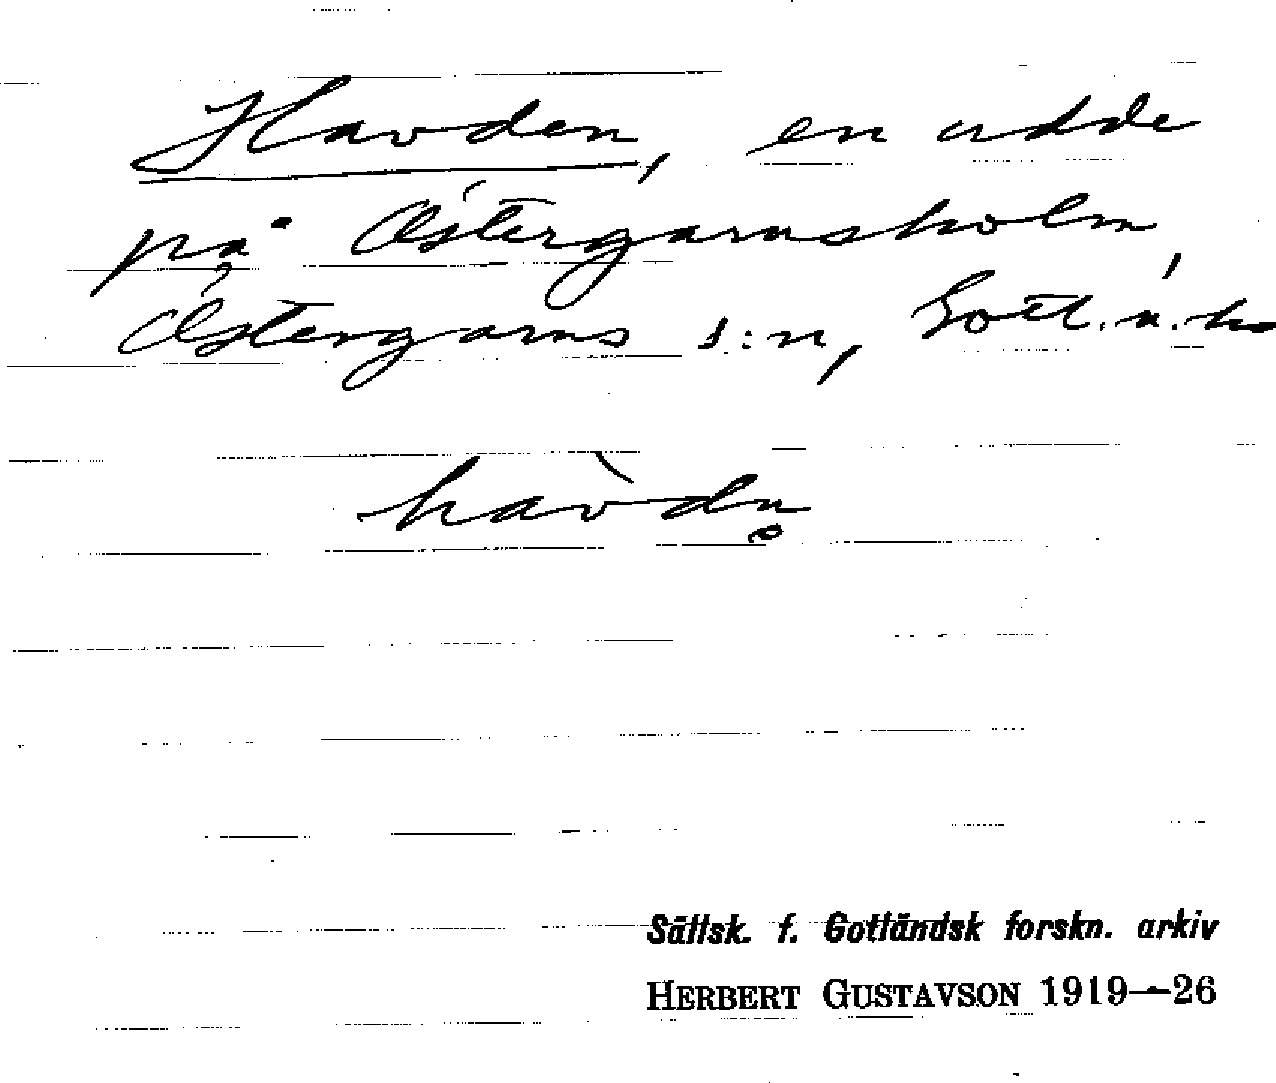 Havden, en udde
på Östergarnsholm,
Östergarns s:n, Gotl. n. hd
hàvdn̥
Sällsk. f. Gotländsk forskn. arkiv
HERBERT GUSTAVSON 1919—26